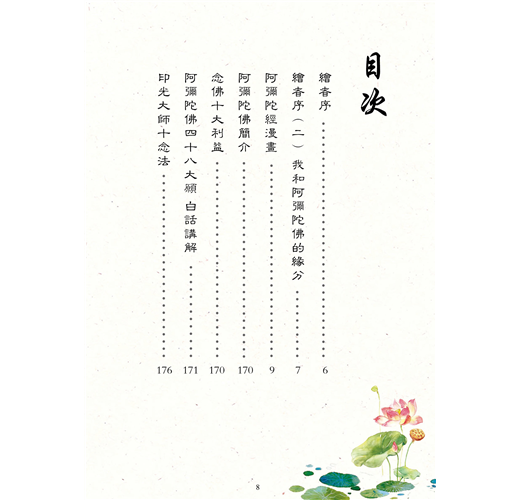 目次
繪者序 6
繪者序(二) 我和阿彌陀佛的緣分 7
阿彌陀經漫畫 9
阿彌陀佛簡介 170
念佛十大利益 170
阿彌陀佛四十八大願 白話講解 171
印光大師十念法 176
8